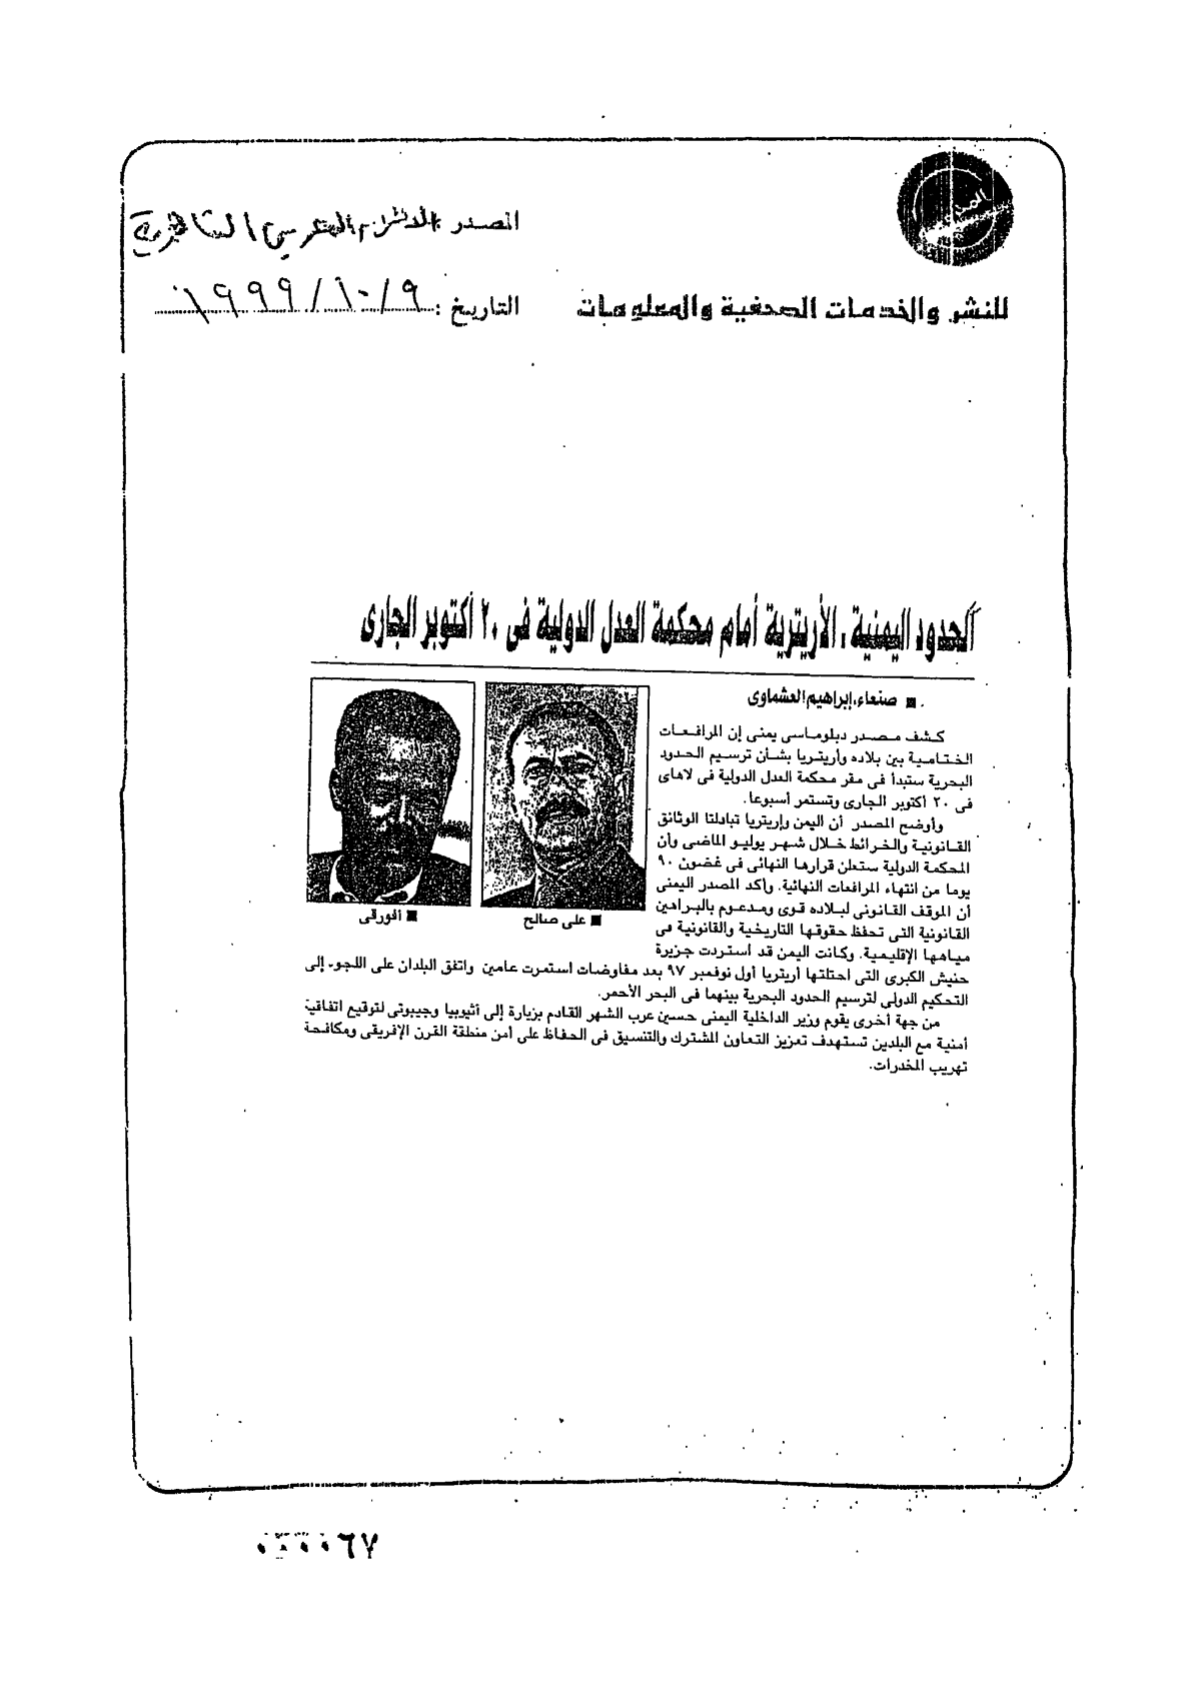 المصدر :
العربي القاهرية
للنشر والخدمات الصحفية والمعلومات
التاريخ : ١٩٩٩/١٠/٩
الحدود اليمنية ، الأريترية أمام محكمة العدل الدولية فى ٢٠ أكتوبر الجارى
■ صنعاء، إبراهيم العشماوى
كشف مصدر دبلوماسى يمنى إن المرافعات
الختامية بين بلاده وأريتريا بشأن ترسيم الحدود
البحرية ستبدأ فى مقر محكمة العدل الدولية فى لاهاى
فى ٢٠ أكتوبر الجارى وتستمر أسبوعا.
وأوضح المصدر أن اليمن وإريتريا تبادلتا الوثائق
القانونية والخرائط خلال شهر يوليو الماضى وأن
المحكمة الدولية ستعلن قرارها النهائى فى غضون ٩٠
يوما من انتهاء المرافعات النهائية. وأكد المصدر اليمنى
أن الموقف القانونى لبلاده قوى ومدعوم بالبراهين
القانونية التى تحفظ حقوقها التاريخية والقانونية فى
مياهها الإقليمية. وكانت اليمن قد استردت جزيرة
حنيش الكبرى التى احتلتها أريتريا أول نوفمبر ٩٧ بعد مفاوضات استمرت عامين واتفق البلدان على اللجوء إلى
التحكيم الدولى لترسيم الحدود البحرية بينهما فى البحر الأحمر.
من جهة أخرى يقوم وزير الداخلية اليمنى حسين عرب الشهر القادم بزيارة إلى أثيوبيا وجيبوتى لتوقيع اتفاقية
أمنية مع البلدين تستهدف تعزيز التعاون المشترك والتنسيق فى الحفاظ على أمن منطقة القرن الإفريقى ومكافحة
تهريب المخدرات.
■ على صالح
■ أفورقى
٠٠٠٠٦٧